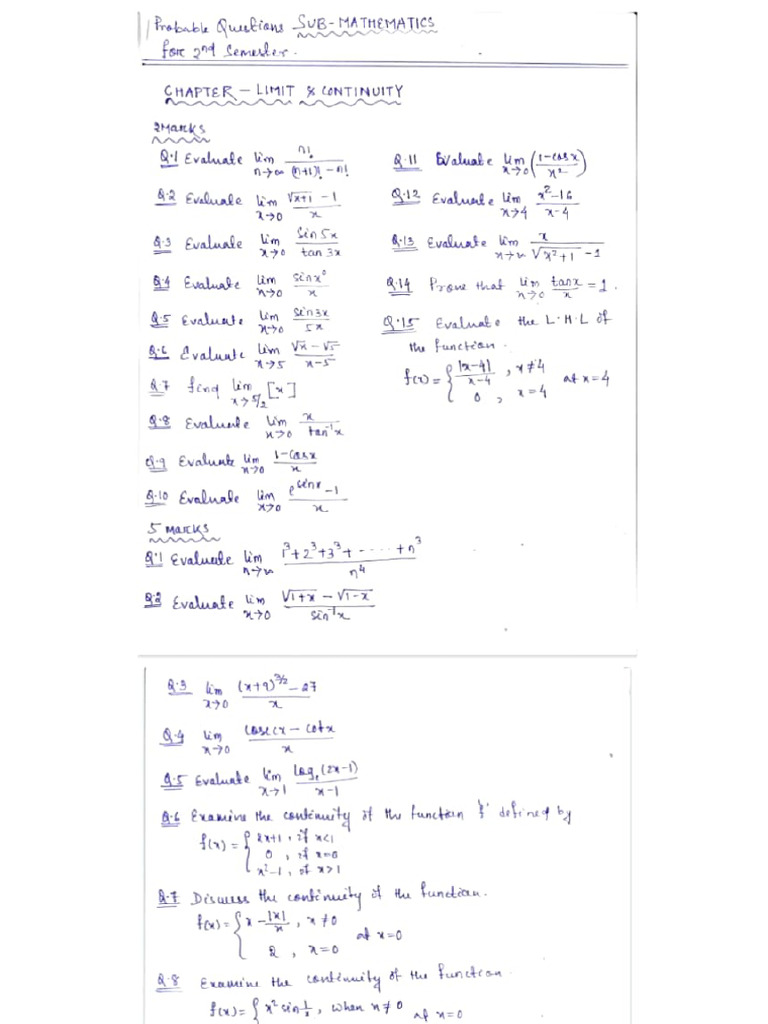 Probable Questions SUB-MATHEMATICS
for 2nd Semester.
CHAPTER – LIMIT & CONTINUITY
2Marks
Q.1 Evaluate lim n→∞ n!/((n+1)! – n!)
Q.2 Evaluate lim x→0 (√(x+1) – 1)/x
Q.3 Evaluate lim x→0 sin 5x/tan 3x
Q.4 Evaluate lim x→0 sin x°/x
Q.5 Evaluate lim x→0 sin 3x/5x
Q.6 Evaluate lim x→5 (√x – √5)/(x–5)
Q.7 find lim x→5/2 [x]
Q.8 Evaluate lim x→0 x/tan⁻¹x
Q.9 Evaluate lim x→0 (1–cosx)/x
Q.10 Evaluate lim x→0 (e^sinx – 1)/x
Q.11 Evaluate lim x→0 ((1–cosx)/x²)
Q.12 Evaluate lim x→4 (x²–16)/(x–4)
Q.13 Evaluate lim x→∞ x/(√(x²+1) –1)
Q.14 Prove that lim x→0 tanx/x = 1.
Q.15 Evaluate the L.H.L of
the function.
f(x) = { |x–4|/(x–4) , x≠4
0 , x=4 at x=4
5 marks
Q.1 Evaluate lim n→∞ (1³+2³+3³+ ----- +n³)/n⁴
Q.2 Evaluate lim x→0 (√(1+x) – √(1–x))/sin⁻¹x
Q.3 lim x→0 ((x+9)^3/2 – 27)/x
Q.4 lim x→0 (cosecx – cotx)/x
Q.5 Evaluate lim x→1 logₑ(2x–1)/(x–1)
Q.6 Examine the continuity of the function 'f' defined by
f(x) = { 2x+1 , if x<1
0 , if x=0
x²–1 , if x>1
Q.7 Discuss the continuity of the function.
f(x) = { x – |x|/x , x≠0
2 , x=0 at x=0
Q.8 Examine the continuity of the function.
f(x) = { x² sin 1/x , when x≠0 at x=0